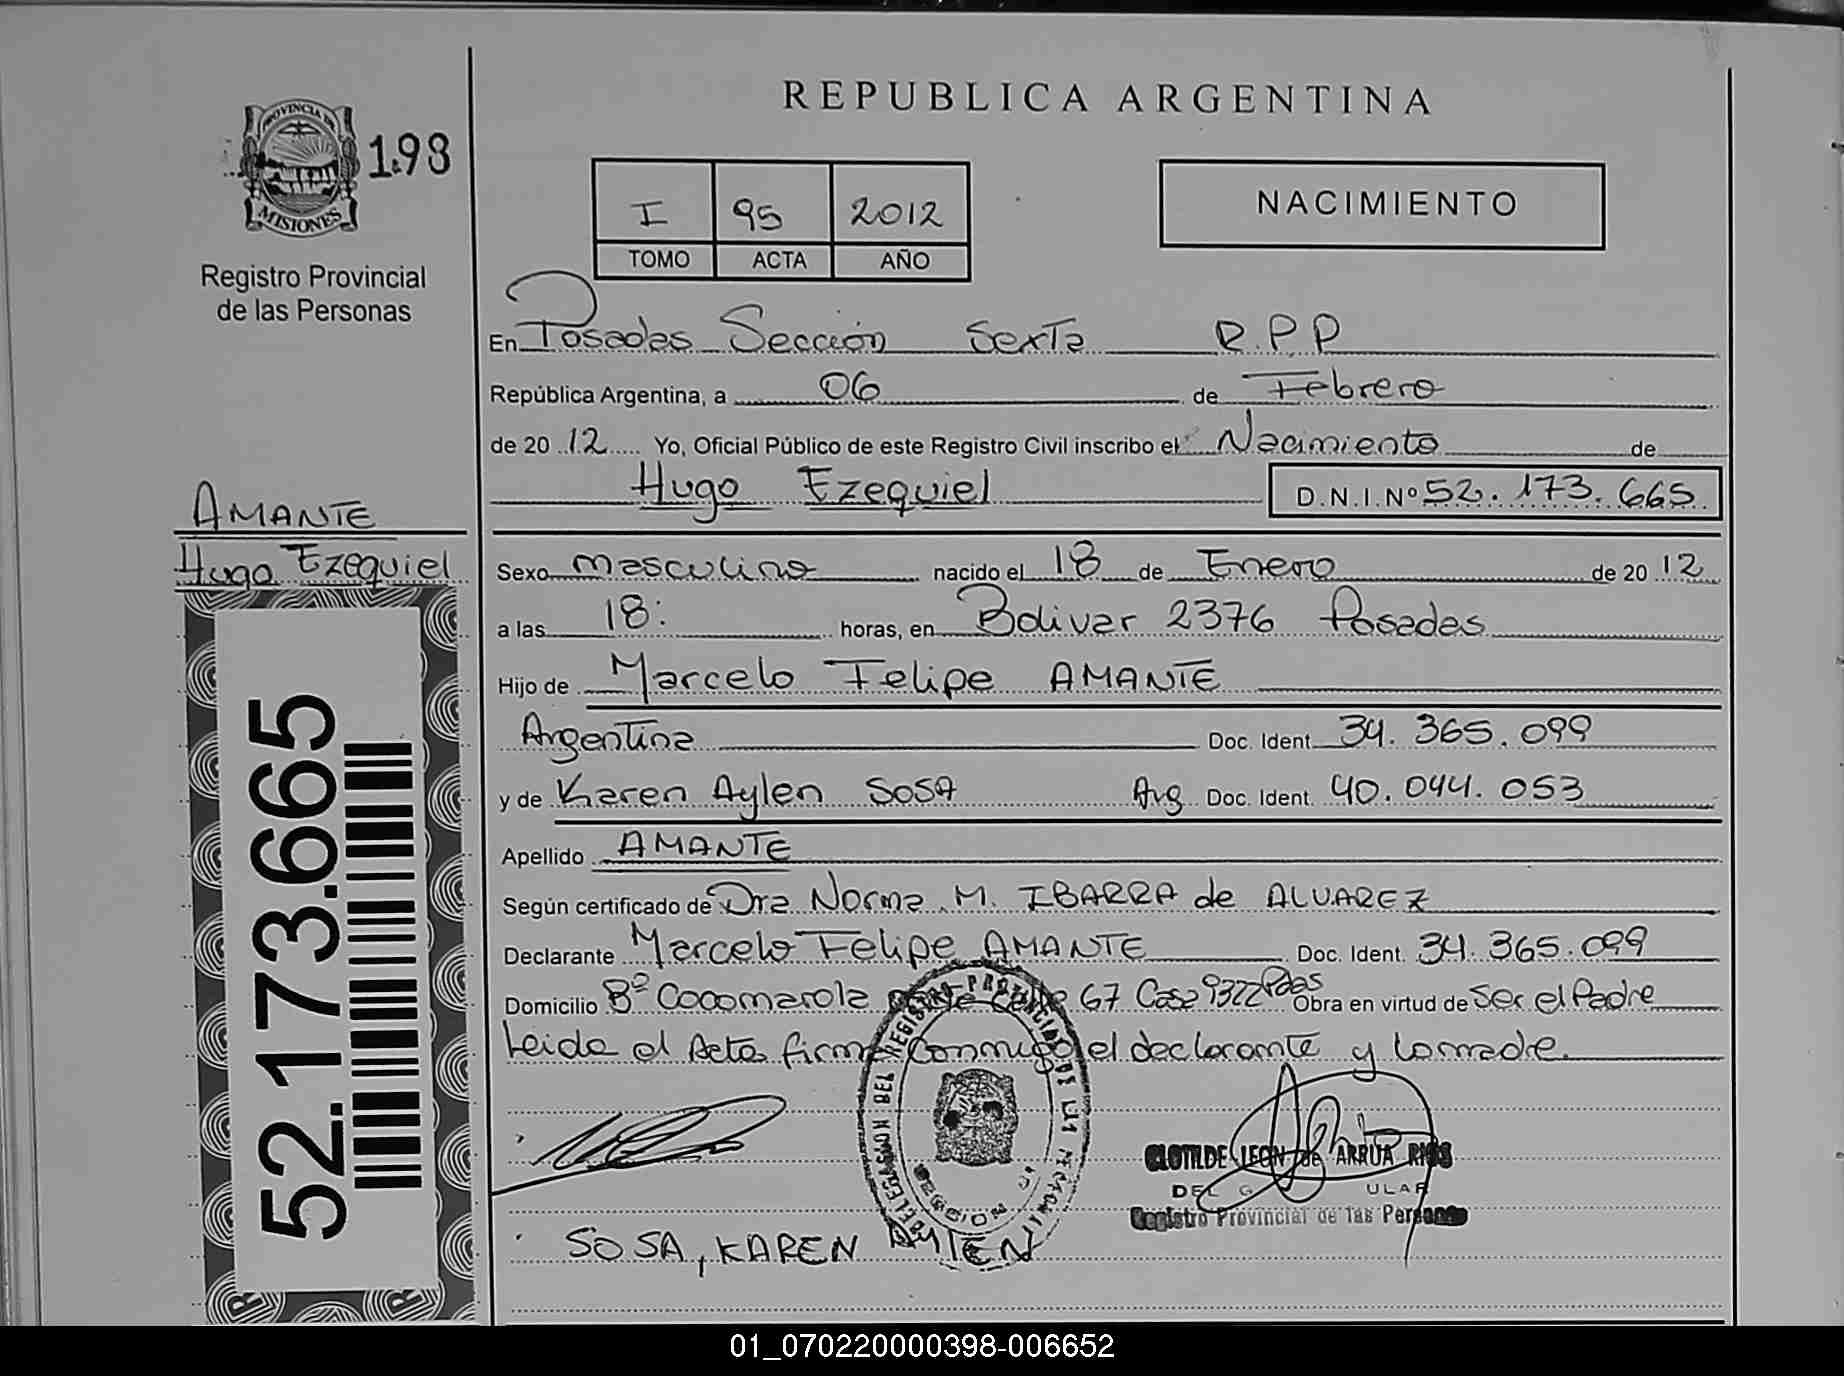 REPUBLICA ARGENTINA
PROVINCIA DE
MISIONES
198
Registro Provincial
de las Personas
I 95 2012
TOMO ACTA AÑO
NACIMIENTO
En Posadas Sección Sexta R.P.P
República Argentina, a 06 de Febrero
de 20 12 Yo, Oficial Público de este Registro Civil inscribo el Nacimiento de
Hugo Ezequiel D.N.I.Nº 52.173.665
AMANTE
Hugo Ezequiel
52.173.665
Sexo masculino nacido el 18 de Enero de 20 12
a las 18: horas, en Bolivar 2376 Posadas
Hijo de Marcelo Felipe AMANTE
Argentina Doc. Ident. 34.365.099
y de Karen Aylen SOSA Arg Doc. Ident. 40.044.053
Apellido AMANTE
Según certificado de Dra Norma M. IBARRA de ALVAREZ
Declarante Marcelo Felipe AMANTE Doc. Ident. 34.365.099
Domicilio Bº Cocomarola 67 Casa 9322 Pdas Obra en virtud de ser el Padre
Leida el Acta firma conmigo el declarante y la madre.
DELEGACION DEL REGISTRO PROVINCIAL DE LAS
SECCION
CLOTILDE LEON de ARRUA RIOS
Registro Provincial de las Personas
SOSA, KAREN AYLEN
01_070220000398-006652